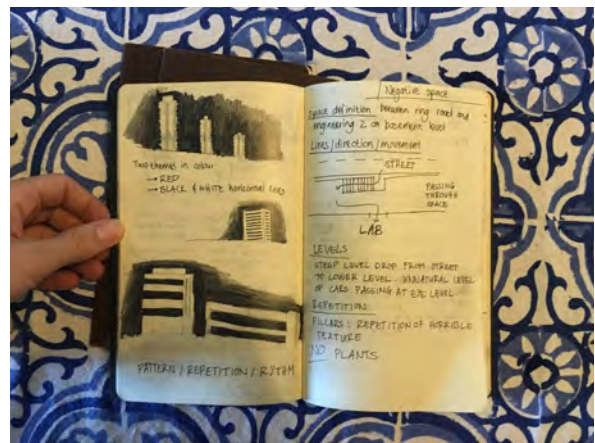 Two themes in colour
→ RED
→ BLACK & WHITE horizontal lines
PATTERN / REPETITION / RYTHM
Negative space
Space definition between ring road and
engineering 2 on basement level
Lines/direction/movement
STREET
PASSING
THROUGH
SPACE
LAB
LEVELS
STEEP LEVEL DROP FROM STREET
TO LOWER LEVEL. UNNATURAL LEVEL
OF CARS PASSING AT EYE LEVEL.
REPETITION
PILLARS: REPETITION OF HORRIBLE
TEXTURE
NO PLANTS